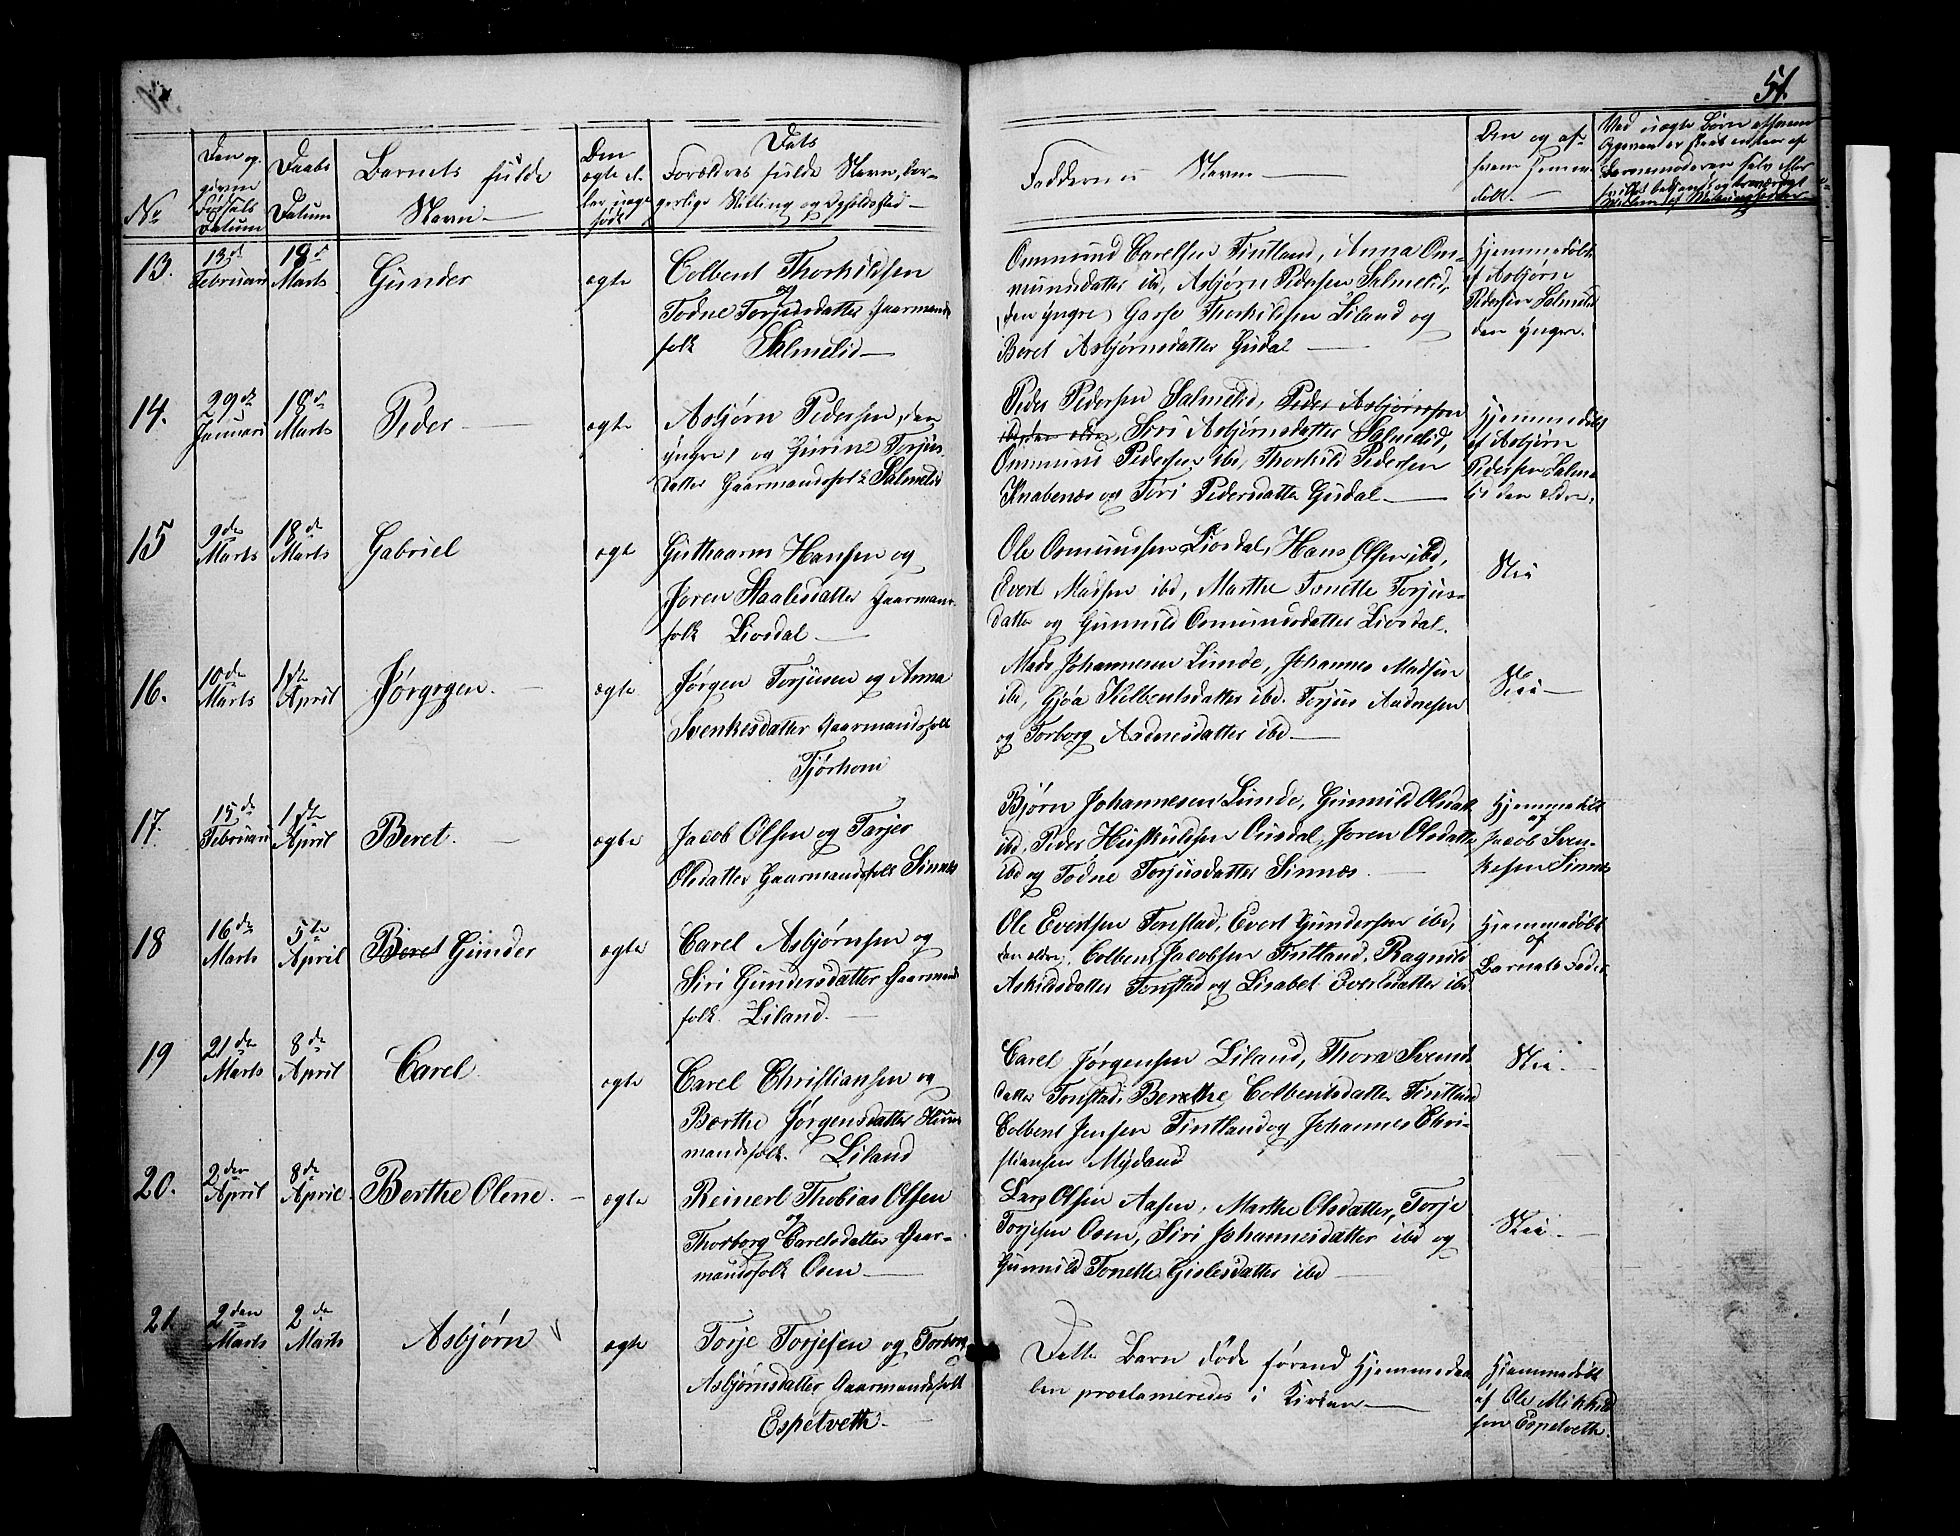 51.
No
Den og
givne
Födsels
Datum
Daabs
Datum
Barnets fulde
Navn
Om
ægte el
ler uægte
født
Dets
Forældres fulde Navn, bor-
gerlige Stilling og Opholdssted
Faddernes Navn
Om og af
hvem hjemme
døbt.
Ved uægte Børn
13.
13de
Februari
18de
Marts
Gunder
ægte
Colbent Thorkildsen
og
Todne Torjusdatter Gaarmands
folk Salmelid
Ommund Carelsen Fintland, Anna Om-
mundsdatter ibd, Asbjørn Pedersen Salmelid,
(den yngre) Garse Thorkildsen Liland og
Beret Asbjørnsdatter Gusdal
Hjemmedøbt
af Asbjørn
Pedersen Salmelid
den yngre.
14.
29de
Januari
18de
Marts
Peder
ægte
Asbjørn Pedersen, den
yngre, og Gurine Torjus
datter Gaarmandsfolk Salmelid
Peder Pedersen Salmelid, Peder Asbjørnsen
ibd den eldre, Siri Asbjørnsdatter Salmelid,
Ommund Pedersen ibd, Thorkild Pedersen
Knabenæs og Siri Pedersdatter Gusdal
Hjemmedøbt
af Asbjørn
Pedersen Salme
lid den eldre.
15
9de
Marts
18de
Marts
Gabriel
ægte
Guthaarm Hansen og
Joren Staalesdatter Gaarmans
folk Liosdal
Ole Osmundsen Liosdal, Hans Olsen ibd,
Evert Madsen ibd, Marthe Tonette Torjus-
datter og Gunnild Osmundsdatter Liosdal.
Nei
16.
10de
Marts
1ste
April
Jørgegen.
ægte
Jørgen Torjusen og Anna
Svenkesdatter Gaarmandsfolk
Tjørhom
Mads Johannesen Lunde, Johannes Madsen
ibd, Gjøa Kolbentsdatter ibd. Torjus Aadnesen
og Torborg Aadnesdatter ibd
Nei
17.
15de
Februari
1ste
April
Beret.
ægte
Jacob Olsen og Tarjer
Olsdatter Gaarmandsfolk Sinnes
Bjørn Johannesen Lunde, Gunnild Olsdatt
ibd, Peder Huskuldsen Ousdal, Joren Olsdatte
ibd og Todne Torjusdatter Sinnæs.
Hjemmedøbt
af
Jacob Sven-
kesen Sinnes
18
16de
Marts
5te
April
Beret Gunder
ægte
Carel Asbjørnsen og
Siri Gundersdatter Gaarmands
folk. Liland.
Ole Evertsen Tonstad, Evert Gundersen ibd,
den eldre. Colbent Jacobsen Fintland, Ragnild
Askildsdatter Tonstad og Lisabet Evertsdatter ibd
Hjemmedøbt
af
Barnets Fader
19
21de
Marts
8de
April
Carel
ægte
Carel Christiansen og
Berthe Jørgensdatter Huus
mandsfolk. Liland
Carel Jørgensen Liland, Thora Svends
datter Tonstad, Berthe Colbentsdatter Fintland
Colbent Jensen Fintland og Johannes Chri-
stiansen Mydland
Nei.
20.
2den
April
8de
April
Berthe Olene.
ægte
Reinert Thobias Olsen
og
Thorborg Carelsdatter Gaar-
mandsfolk Osen
Lars Olsen Aasen, Marthe Olsdatter, Torje
Torjesen Osen, Siri Johannesdatter ibd og
Gunnild Tonette Gislesdatter ibd
Nei.
21.
2den
Marts
2de
Marts
Asbjørn
ægte
Torje Torjesen og Torborg
Asbjørnsdatter Gaarmandsfolk
Espetveth.
Dette Barn døde førend Hjemmedaa
ben proclameredes i Kirken
Hjemmedøbt
af Ole Mikkel
sen Espetveth.